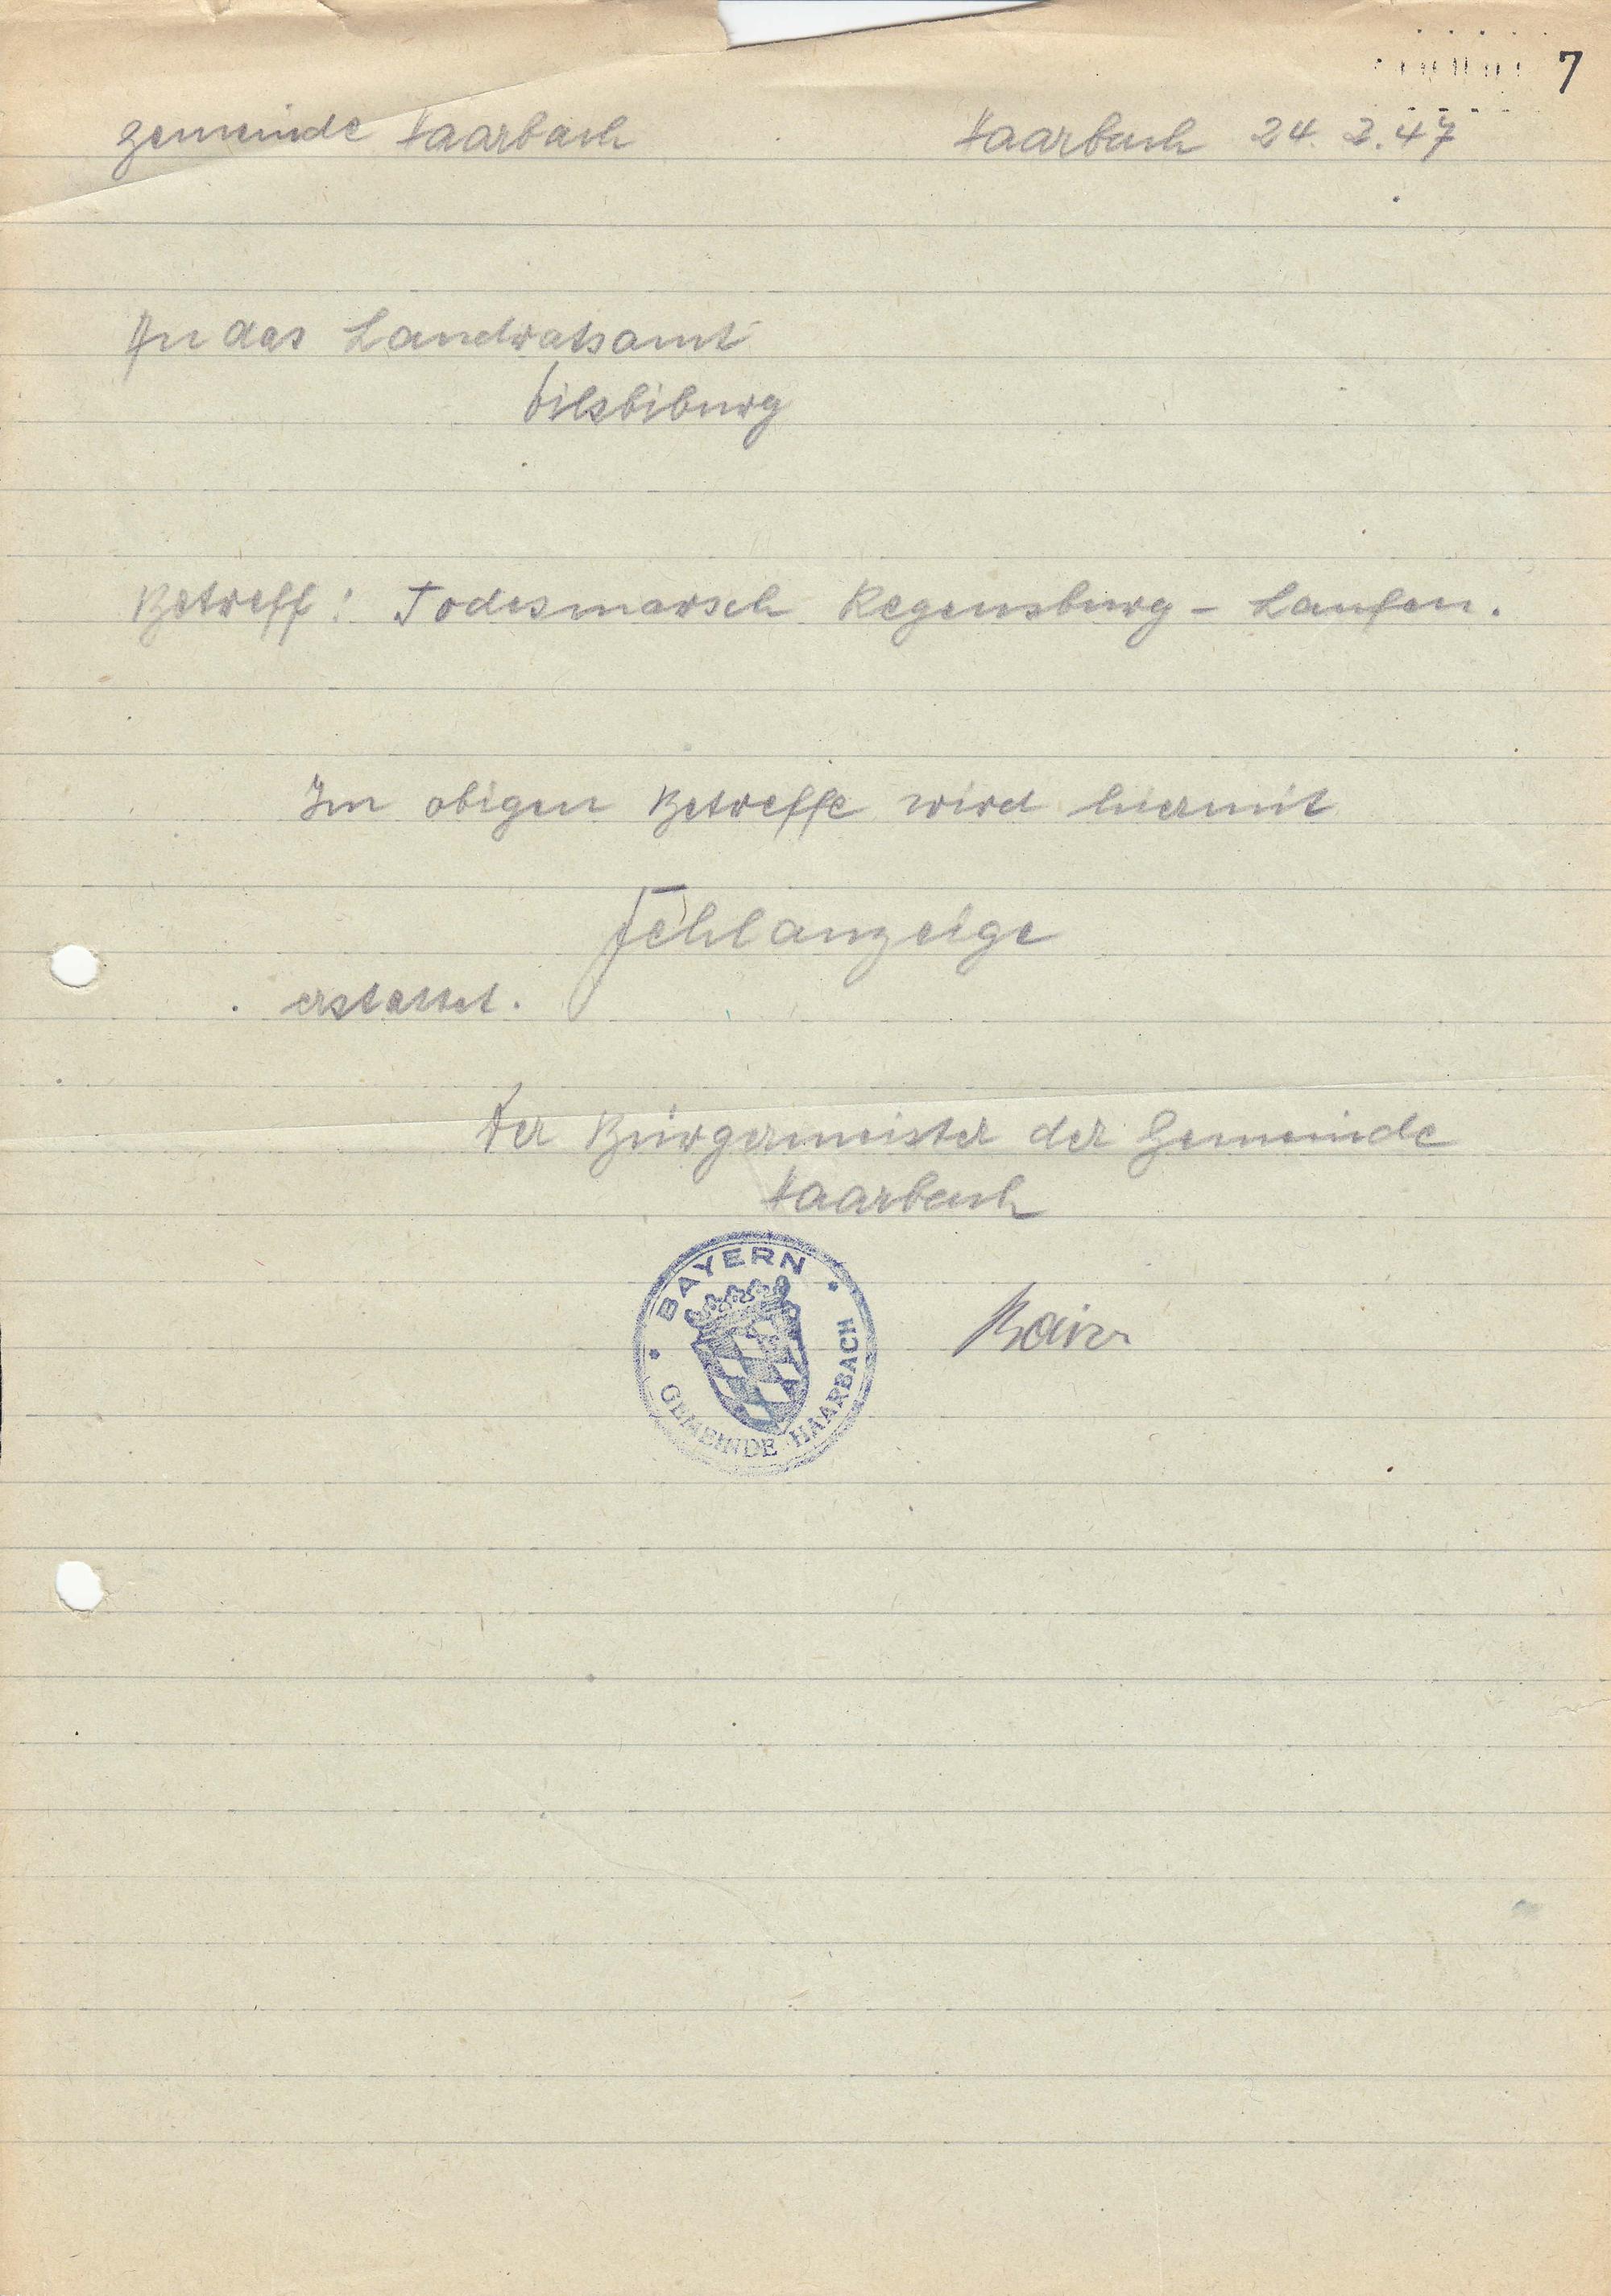 7
Gemeinde Haarbach Haarbach 24. 2. 47
An das Landratsamt
Vilsbiburg
Betreff: Todesmarsch Regensburg - Laufen.
Im obigen Betreffe wird hiermit
Fehlanzeige
erstattet.
Der Bürgermeister der Gemeinde
Haarbach
BAYERN
GEMEINDE HAARBACH